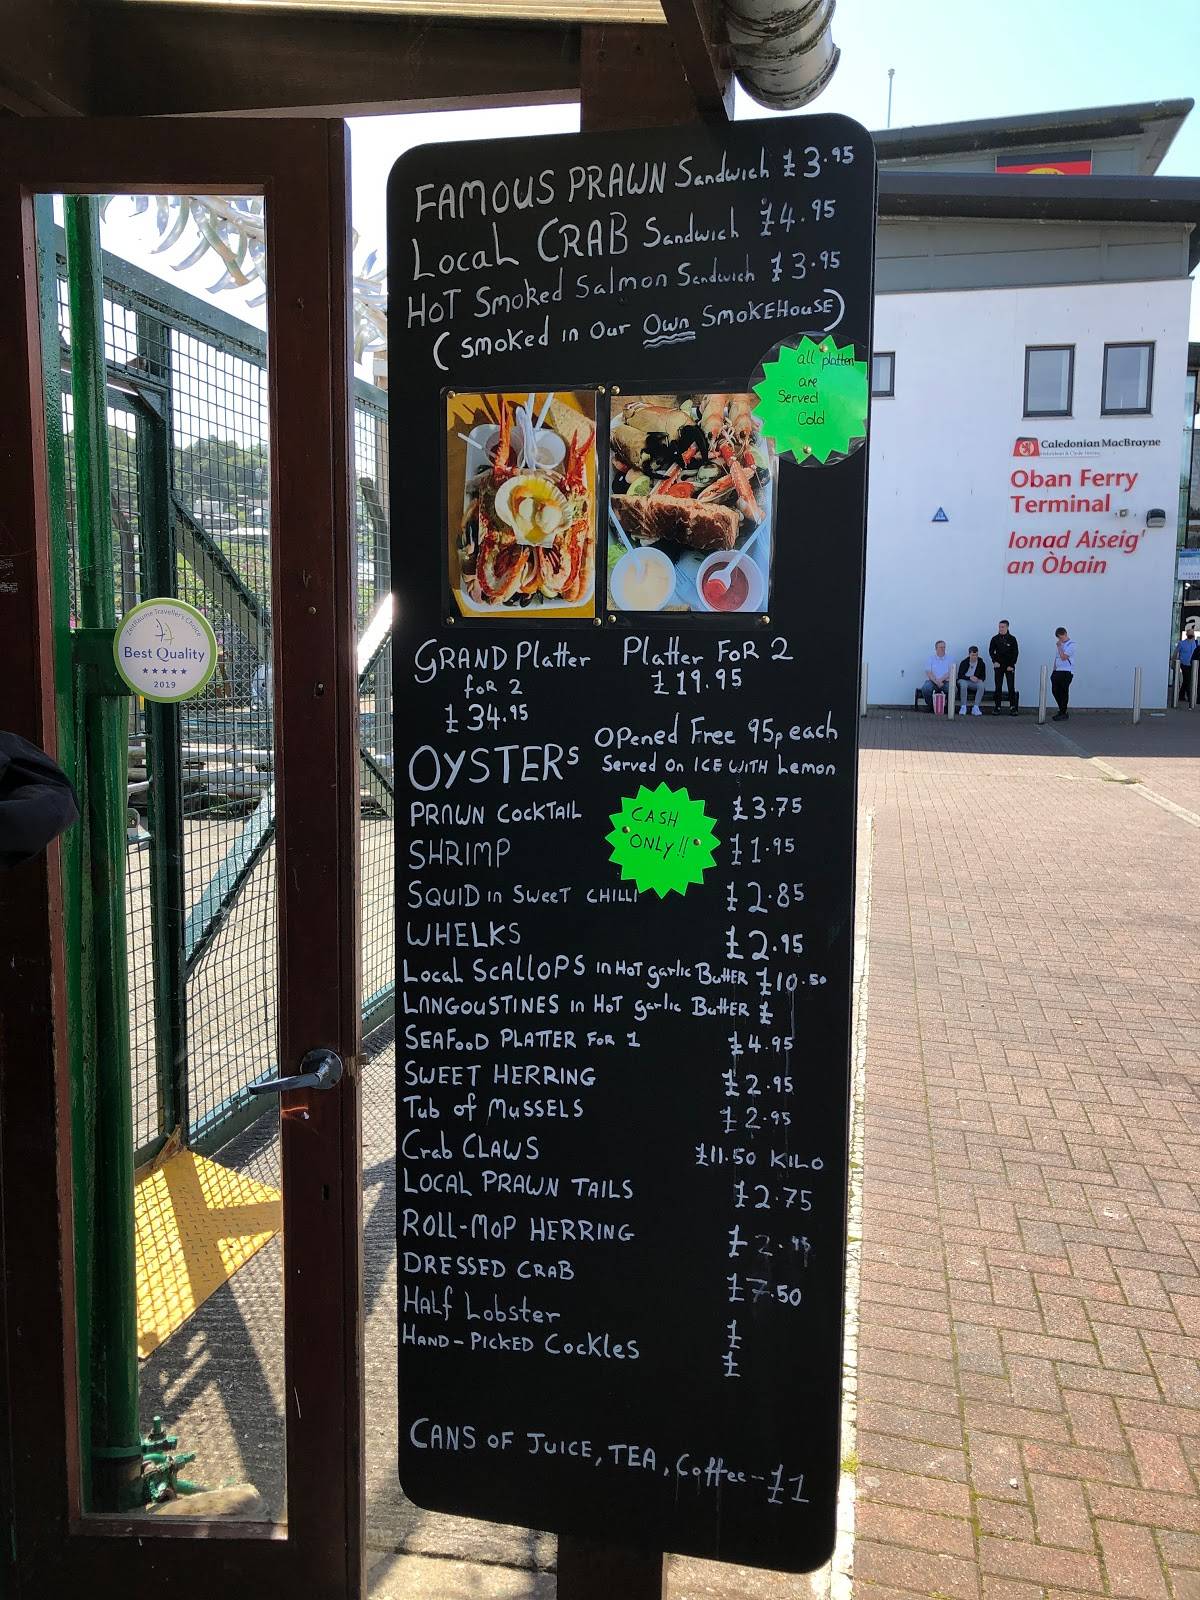 FAMOUS PRAWN Sandwich £3.95
Local CRAB Sandwich £4.95
HOT Smoked Salmon Sandwich £3.95
(Smoked in Our Own SMOKEHOUSE)
all platters
are
Served
Cold
GRAND Platter
for 2
£34.95
Platter FOR 2
£19.95
OYSTERS OPened Free 95p each
Served On ICE WITH Lemon
PRAWN COCKTAIL £3.75
CASH
ONLY!!
SHRIMP £1.95
SQUID in SWEET CHILLI £2.85
WHELKS £2.95
Local SCALLOPS in HOT garlic BuTTER £10.50
LANGOUSTINES in HOT garlic BuTTER £
SEAFOOD PLATTER FOR 1 £4.95
SWEET HERRING £2.95
Tub of MUSSELS £2.95
Crab CLAWS £11.50 KILO
LOCAL PRAWN TAILS £2.75
ROLL-MOP HERRING £2.95
DRESSED CRAB £7.50
Half Lobster £
HAND-PICKED COCKLES £
CANS OF JUICE, TEA, Coffee-£1
Best Quality
★★★★★
2019
Caledonian MacBrayne
Oban Ferry
Terminal
Ionad Aiseig
an Òbain